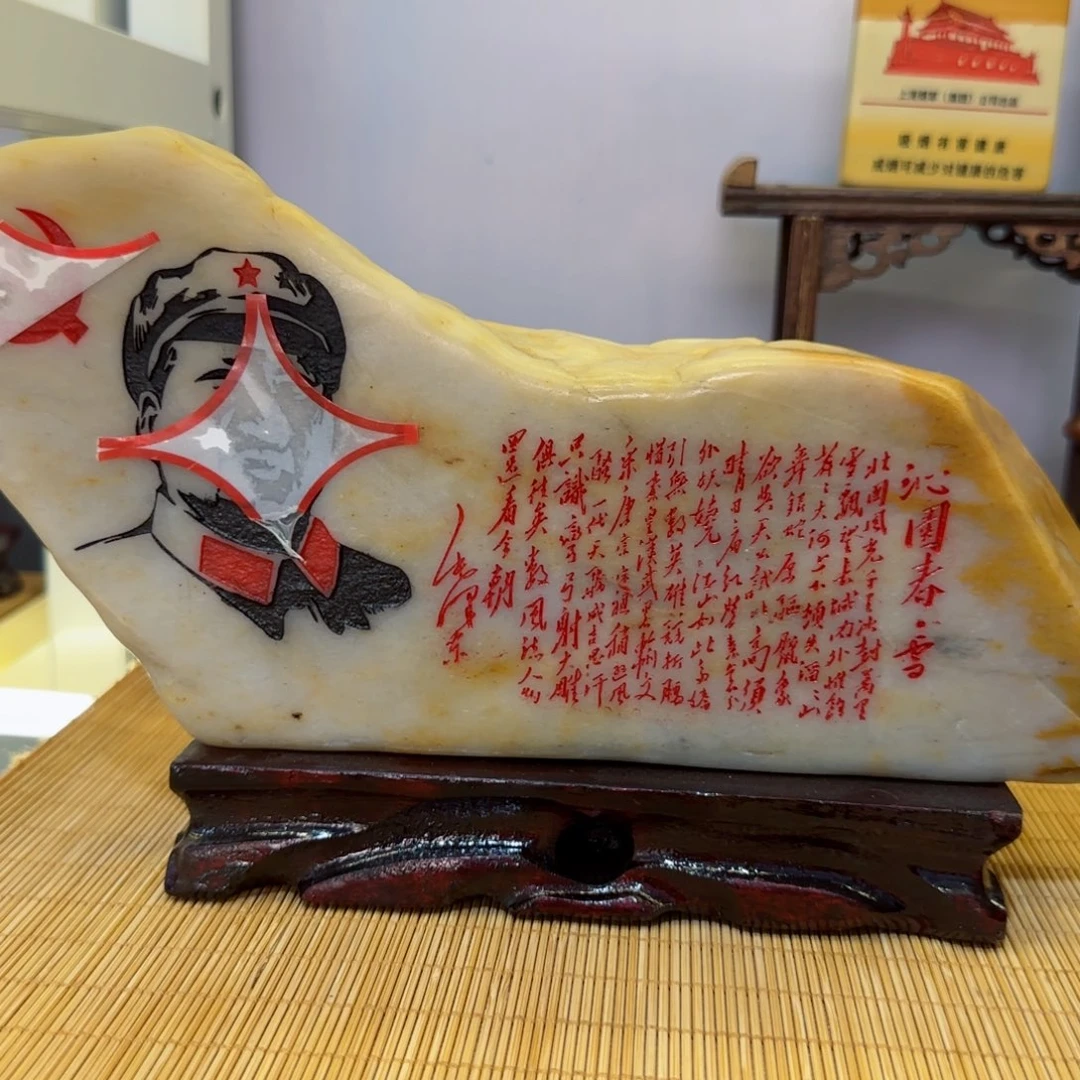 沁園春·雪
北國風光千里冰封萬里
雪飄望長城内外惟餘
莽〻大河上下頓失滔〻山
舞銀蛇原驅臘象
欲與天公試比高須
晴日看紅裝素裹分
外妖嬈江山如此多嬌
引無數英雄競折腰
惜秦皇漢武略輸文
采唐宗宋祖稍遜風
騷一代天驕成吉思汗
只識彎弓射大雕
俱往矣數風流人物
還看今朝
毛澤东
吸烟有害健康
戒烟可减少对健康的危害